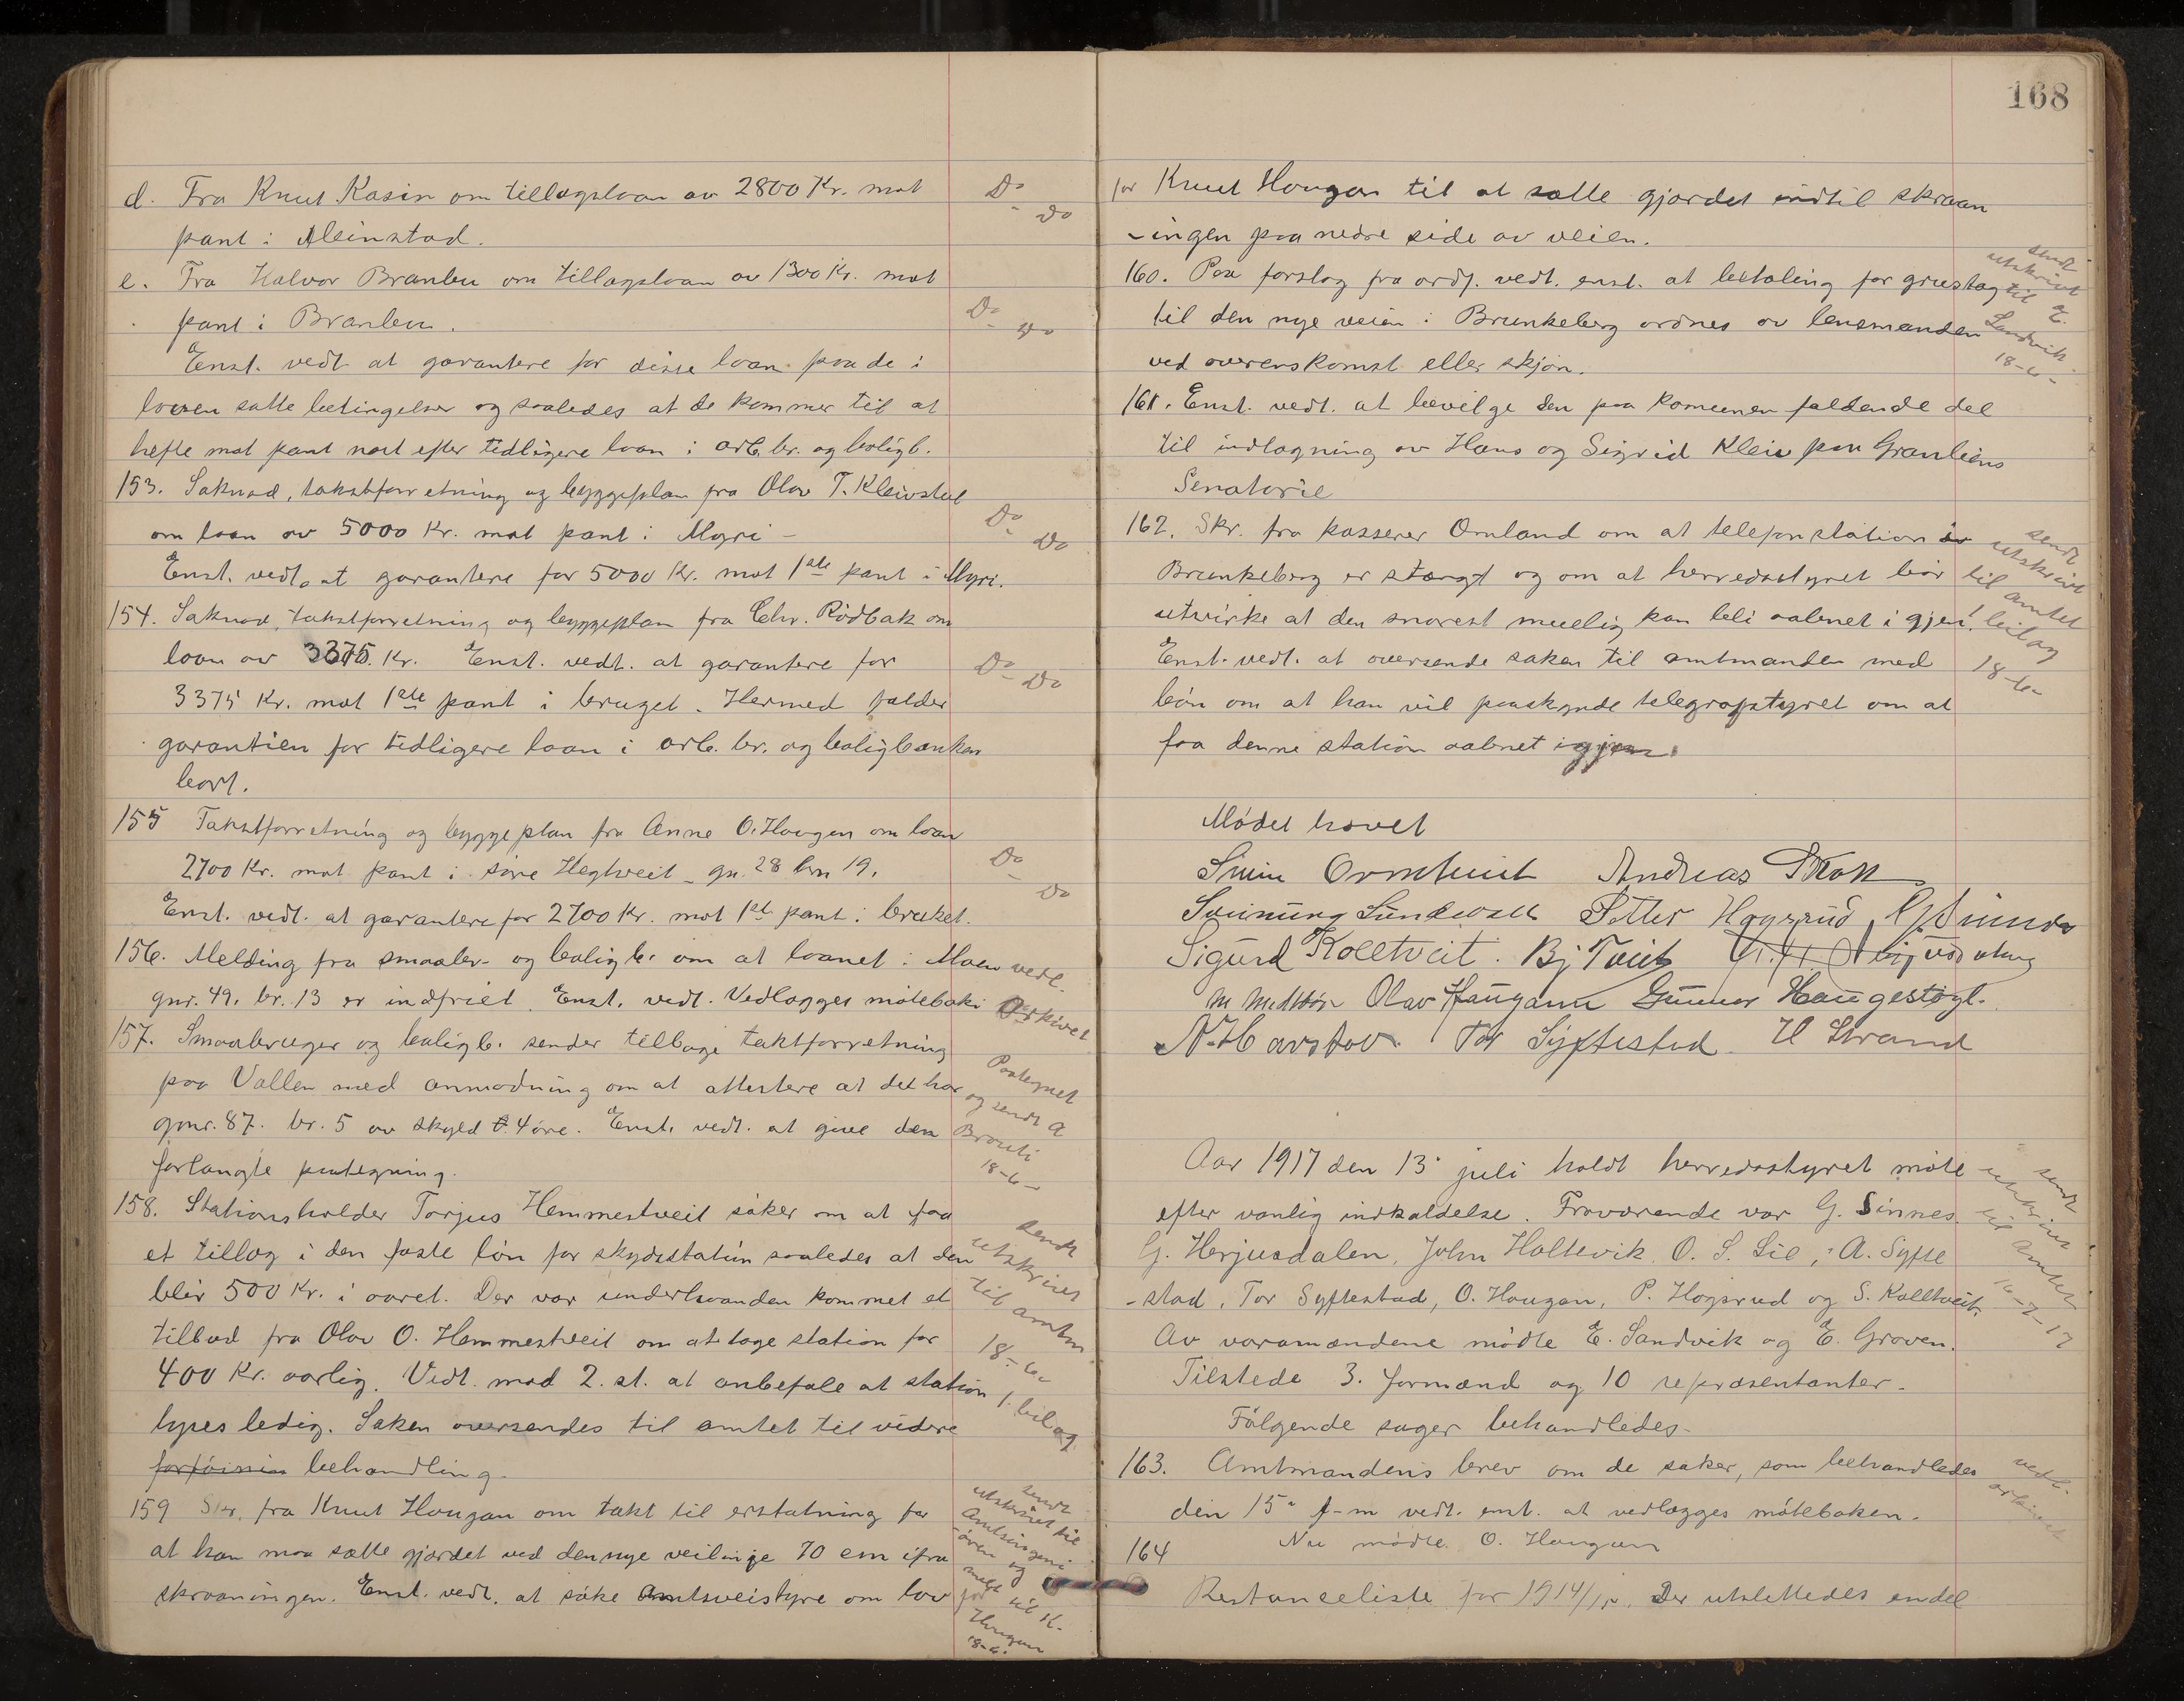 d. Fra Knut Kasin om tillægslaan av 2800 Kr. mot
Do - Do
pant i Meinstad.
e. Fra Halvor Brænben om tillægslaan av 1300 Kr. mot
pant i Brænben.
Do - Do
Enst. vedt. at garantere for disse laan paa de i
loven satte betingelser og saaledes at de kommer til at
hefte mot pant næst efter tidligere laan i arb. br. og boligb.
153. Søknad, takstforretning og byggeplan fra Olav T. Kleivstul
om laan av 5000 Kr. mot pant i Myri -
Do - Do
Enst. vedt. at garantere for 5000 Kr. mot 1ste pant i Myri.
154. Søknad, takstforretning og byggeplan fra Chr. Rødbæk om
laan av 3375. Kr. Enst. vedt. at garantere for
Do - Do
3375 Kr. mot 1ste pant i bruget. Hermed falder
garantien for tidligere laan i arb. br. og boligbanken
bort.
155 Takstforretning og byggeplan fra Anne O. Haugen om laan
2700 Kr. mot pant i søre Hegtveit - gn. 28 brn 19.
Do - Do
Enst. vedt. at garantere for 2700 Kr. mot 1st pant i bruket.
156. Melding fra smaabr- og boligb. om at laanet i Moen
gnr. 49. br. 13 er indfriet. Enst. vedt. Vedlægges møteboki
vedl. Arkivet
157. Smaabruger og boligb. sender tilbage takstforretning
paa Vallen med anmodning om at attestere at det har
gnr. 87. br. 5 av skyld 4 øre. Enst. vedt. at give den
forlangte paategning.
Paategnet
og sendt A
18-6-
158. Stationsholder Torjus Hemmestveit søker om at faa
et tillæg i den faste løn for skydsstation saaledes at den
blir 500 Kr. i aaret. Der var underhaanden kommet et
tilbud fra Olav O. Hemmestveit om at tage station for
400 Kr. aarlig. Vedt. mod 2. st. at anbefale at station
lyses ledig. Saken oversendes til amtet til videre
behandling.
sendt
utskrift
til amtm
18-6-
1. bilag
159 Skr. fra Knut Haugan om takst til erstatning for
at han maa sætte gjærdet ved den nye veilinje 70 cm ifra
skraaningen. Enst. vedt. at søke Amtsveistyre om lov
sendt
utskrift til
Amtsingeni
-øren og
meldt til K.
Haugan
18-6.
168
for Knut Haugan til at sætte gjærdet indtil skraan
-ingen paa nedre side av veien.
160. Paa forslag fra ordf. vedt. enst. at betaling for grustag
til den nye veien i Brunkeberg ordnes av lensmanden
ved overenskomst eller skjøn.
sendt
utskrift
til E.
Sandvik
18-6-
161. Enst. vedt. at bevilge den paa komunen faldende del
til indlægning av Hans og Sigrid Kleiv paa Granliens
Senatorie
162. Skr. fra kasserer Omland om at telefonstation
Brunkeberg er stængt og om at herredsstyret bør
utvirke at den snarest muelig kan bli aabnet i gjen!
Enst. vedt. at oversende saken til amtmanden med
bøn om at han vil paaskynde telegrafstyret om at
faa denne station aabnet igjen.
sendt
utskrift
til amtet
1 bilag
18-6-
Mødet hævet
Svein Ormtveit Andreas Moen
Sveinung Sundvall Petter Høgsrud G Sinnes
Sigurd Kolltveit. Bj Tveit
Olav Haugann Gunnar Haugestøyl.
N. Havstad. Tor Syftestad. H Strand
Aar 1917 den 13. juli holdt herredsstyret møte
efter vanlig indkaldelse. Fraværende var G. Sinnes
G. Herjusdalen, John Haltevik O. S. Lie, A. Syfte
-stad, Tor Syftestad, O. Haugan, P. Høgsrud og S. Kolltveit.
Av varamændene mødte E. Sandvik og E. Groven.
Tilstede 3. formænd og 10 repræsentanter.
Følgende sager behandledes.
sendt
utskrift
til Amtet
16-7-17
163. Amtmandens brev om de saker, som behandledes
den 15. f-m vedt. enst. at vedlægges møteboken.
vedl.
arkivet
164 Nu mødte O. Haugan
Restanceliste for 1914/15. Der utslettedes endel